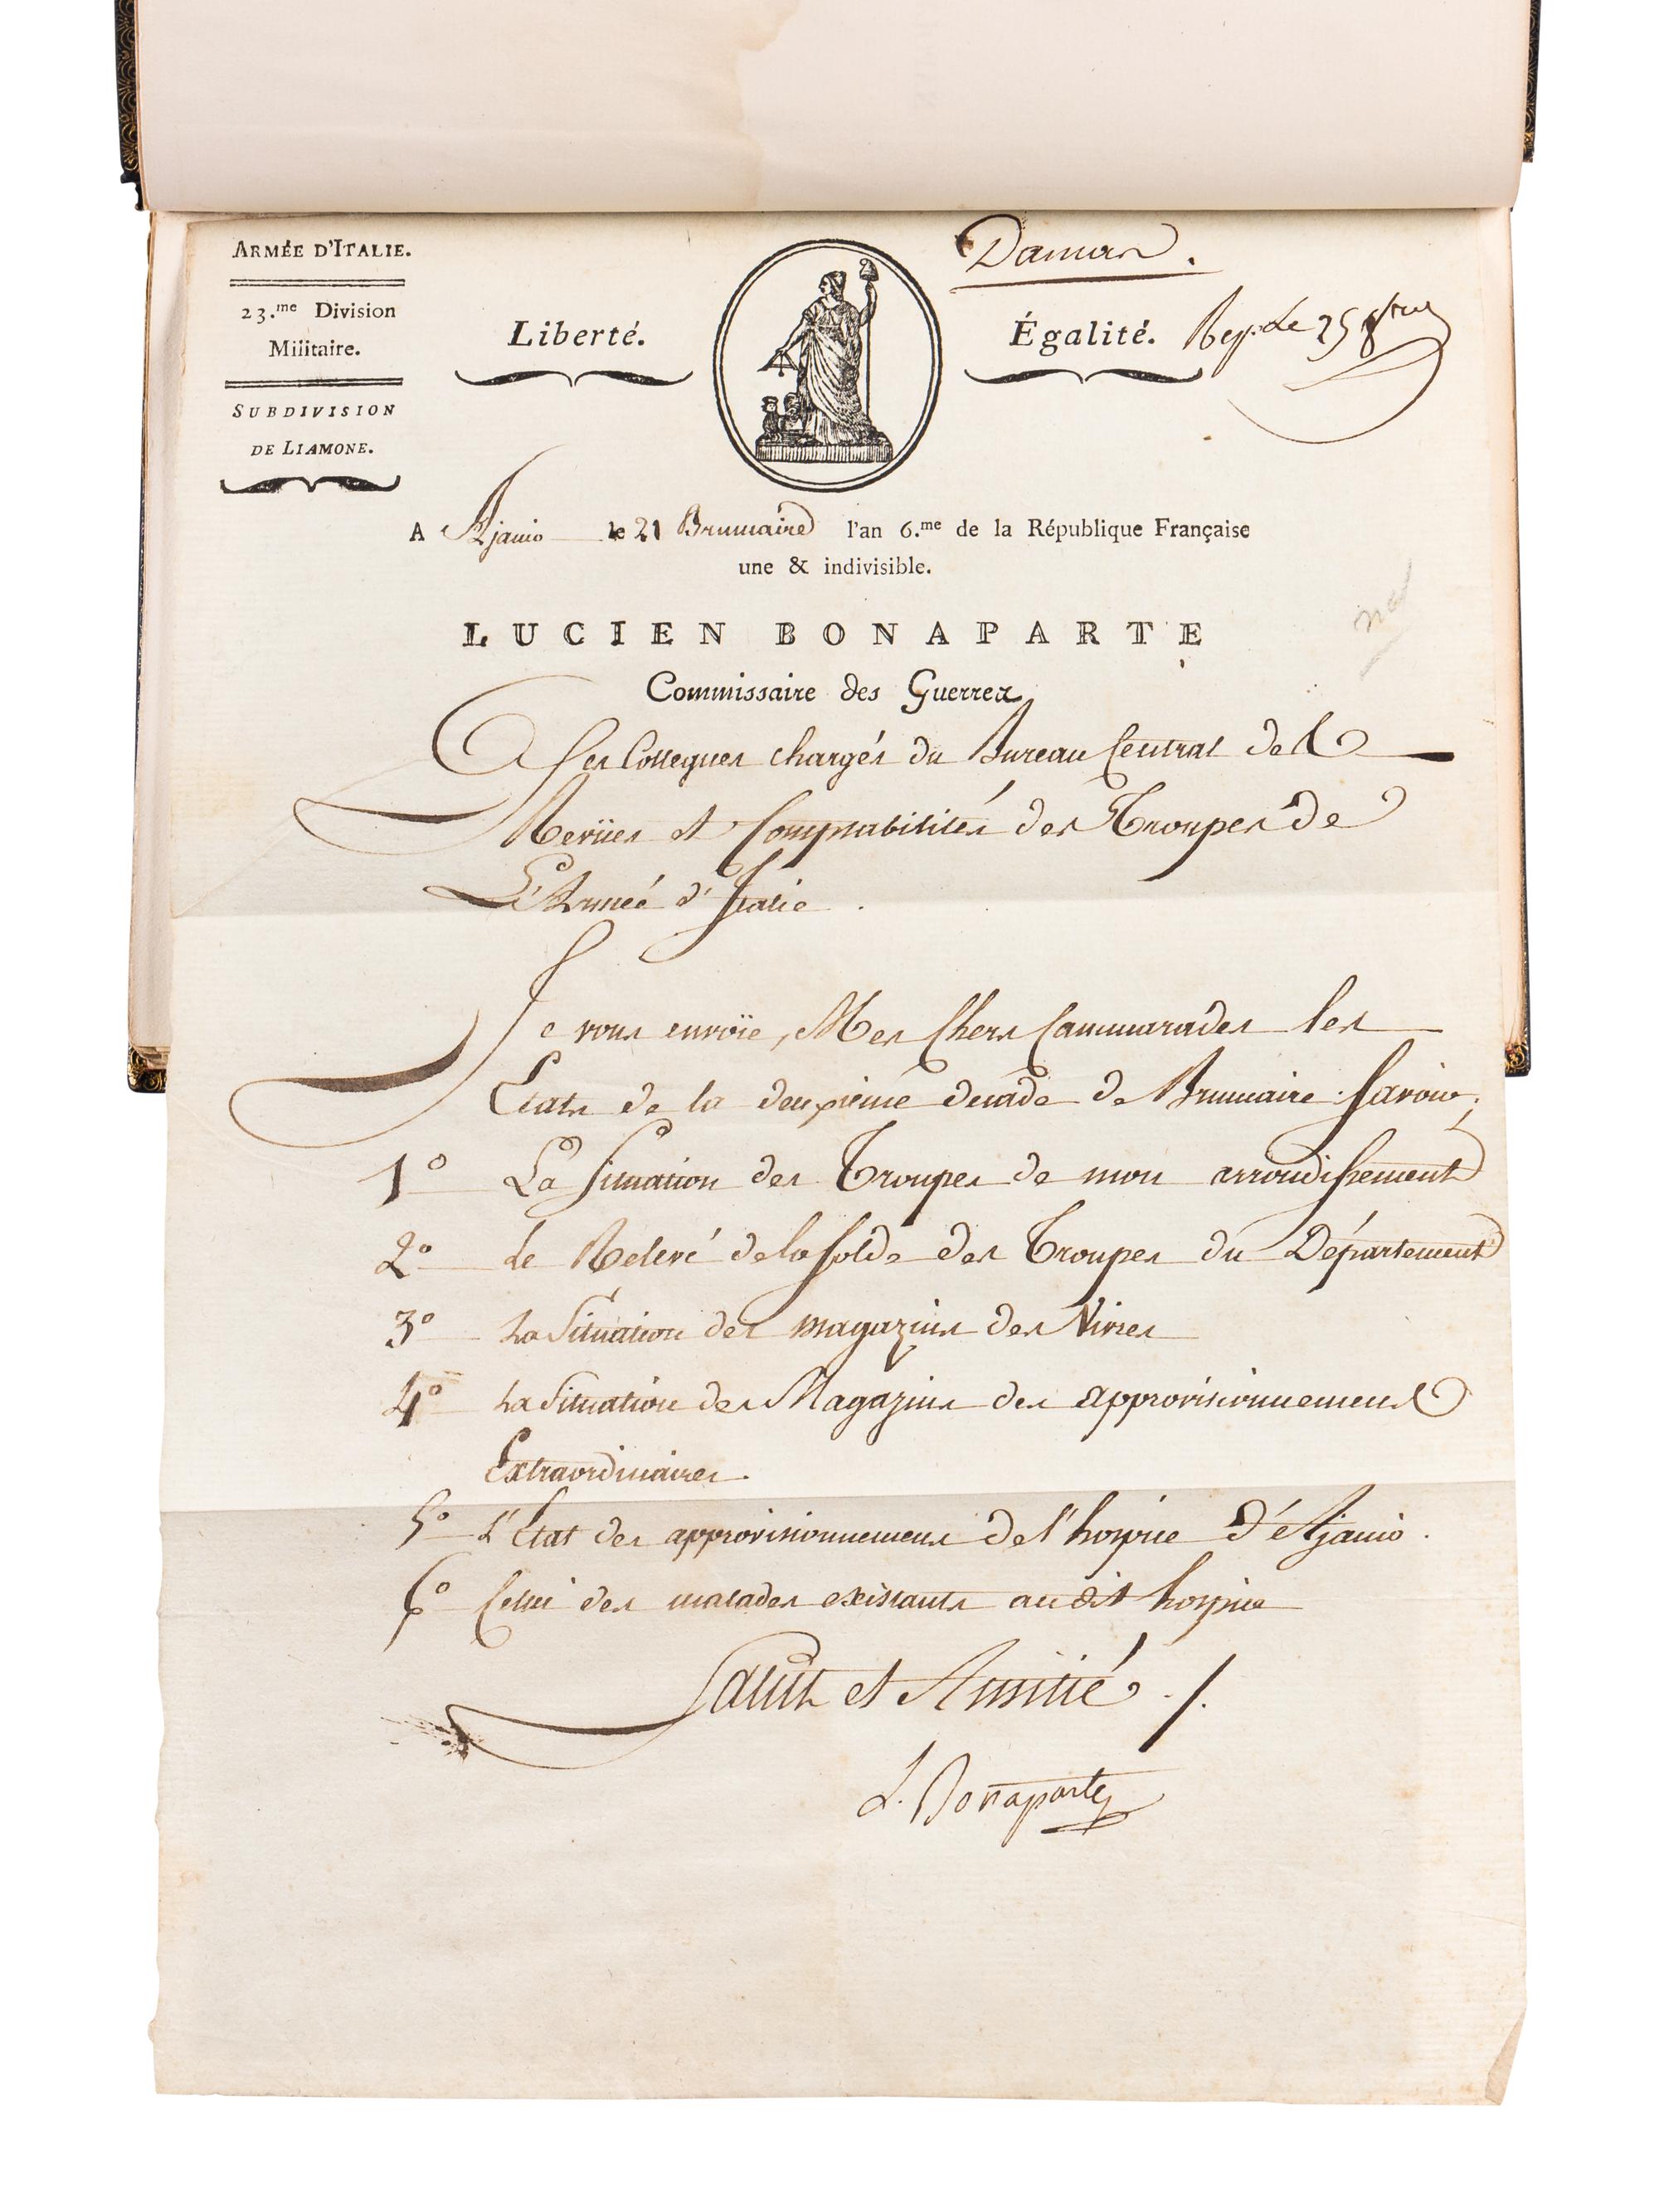 ARMÉE D'ITALIE.
23.me Division
Militaire.
SUBDIVISION
DE LIAMONE.
Liberté.
Égalité.
le 25
A Ajaccio le 21 Brumaire l'an 6.me de la République Française
une & indivisible.
LUCIEN BONAPARTE
Commissaire des Guerres
A Ses Collegues chargés du Bureau Central des
Revües et Comptabilités des Troupes de
L'Armée d'Italie.
Je vous envoïe, Mes Chers Cammarades les
Etats de la deuxieme decade de Brumaire Savoir,
1° La Situation des Troupes de mon arrondissement
2° Le Relevé de la solde des Troupes du Département
3° La Situation des magazins des Vivres
4° La Situation des Magazins des approvisionnemens
Extraordinaires.
5° L'Etat des approvisionnemens de l'hospice d'Ajaccio.
6° Celui des malades existants au dit hospice
Salut et Amitié ./.
L. Bonaparte